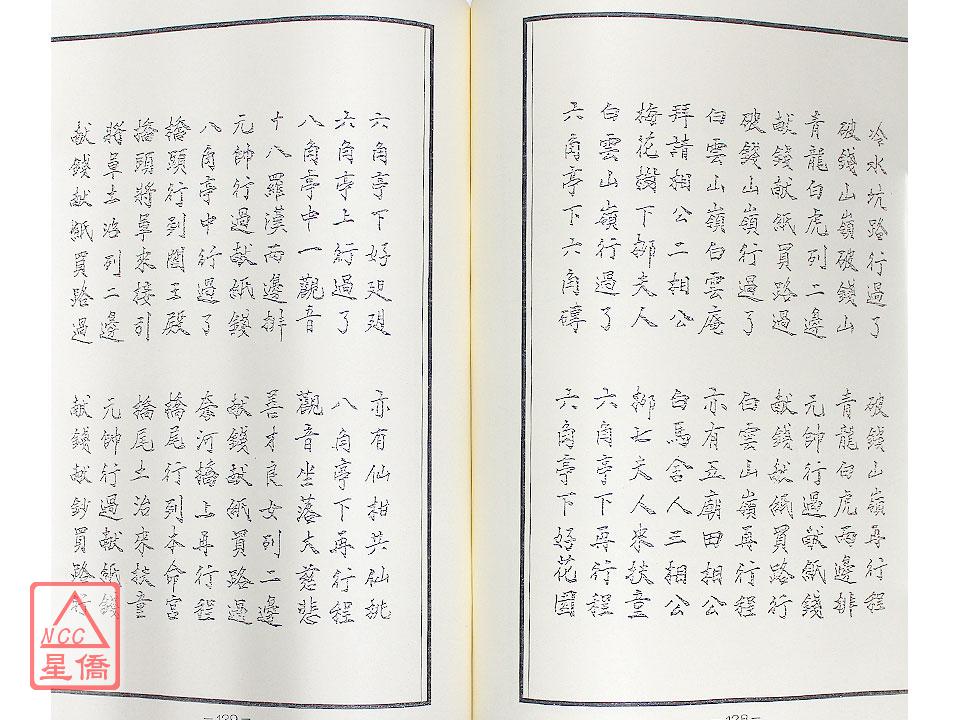 冷水坑路行過了 破錢山嶺再行程
破錢山嶺破錢山 青龍白虎兩邊排
青龍白虎列二邊 元帥行過献紙錢
献錢献紙買路過 献錢献紙買路行
破錢山嶺行過了 白雲山嶺再行程
白雲山嶺白雲庵 亦有五廟田相公
拜請相公二相公 白馬舍人三相公
梅花樹下鄒夫人 鄒七夫人來扶童
白雲山嶺行過了 六角亭下再行程
六角亭下六角磚 六角亭下好花園
—128—
六角亭下好廻廻 亦有仙柑共仙桃
六角亭上行過了 八角亭下再行程
八角亭中一觀音 觀音坐落大慈悲
十八羅漢兩邊排 善才良女列二邊
元帥行過献紙錢 献錢献紙買路過
八角亭中行過了 奈河橋上再行程
橋頭行列閻王殿 橋尾行列本命宮
橋頭將軍來接引 橋尾土治來扶童
將軍土治列二邊 元帥行過献紙錢
献錢献紙買路過 献錢献鈔買路行
—129—
NCC
星僑